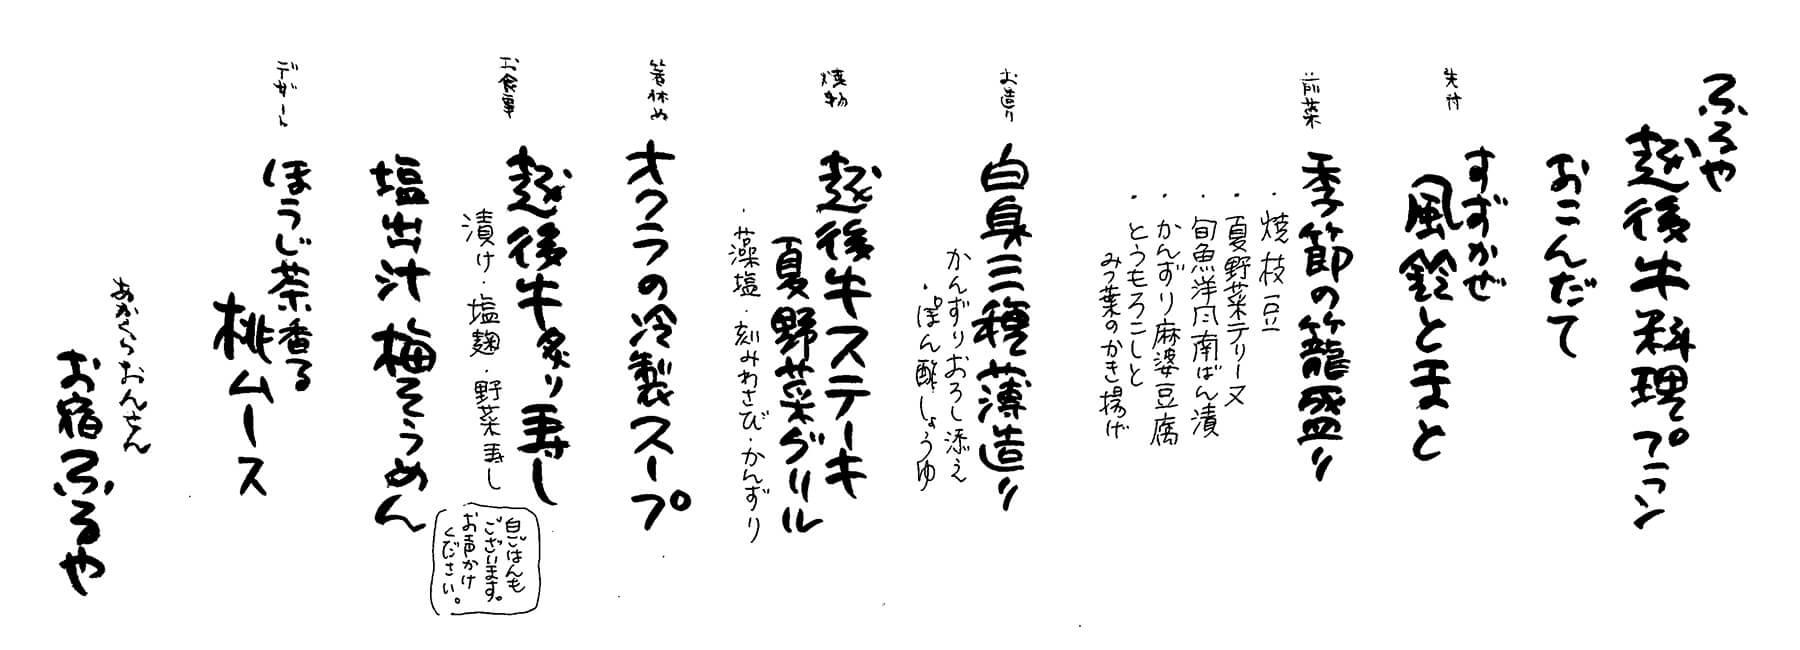 ふるや
越後牛料理プラン
おこんだて
先付
すずかぜ
風鈴とまと
前菜
季節の籠盛り
・焼枝豆
・夏野菜テリーヌ
・旬魚洋風南ばん漬
・かんずり麻婆豆腐
・とうもろこしと
みつ葉のかき揚げ
お造り
白身三種薄造り
かんずりおろし添え
・ぽん酢しょうゆ
焼物
越後牛ステーキ
夏野菜グリル
・藻塩・刻みわさび・かんずり
箸休め
オクラの冷製スープ
お食事
越後牛炙り寿し
漬け・塩麹・野菜寿し
白ごはんも
ございます。
お声かけ
ください。
塩出汁梅そうめん
デザート
ほうじ茶香る
桃ムース
あかくらおんせん
お宿ふるや